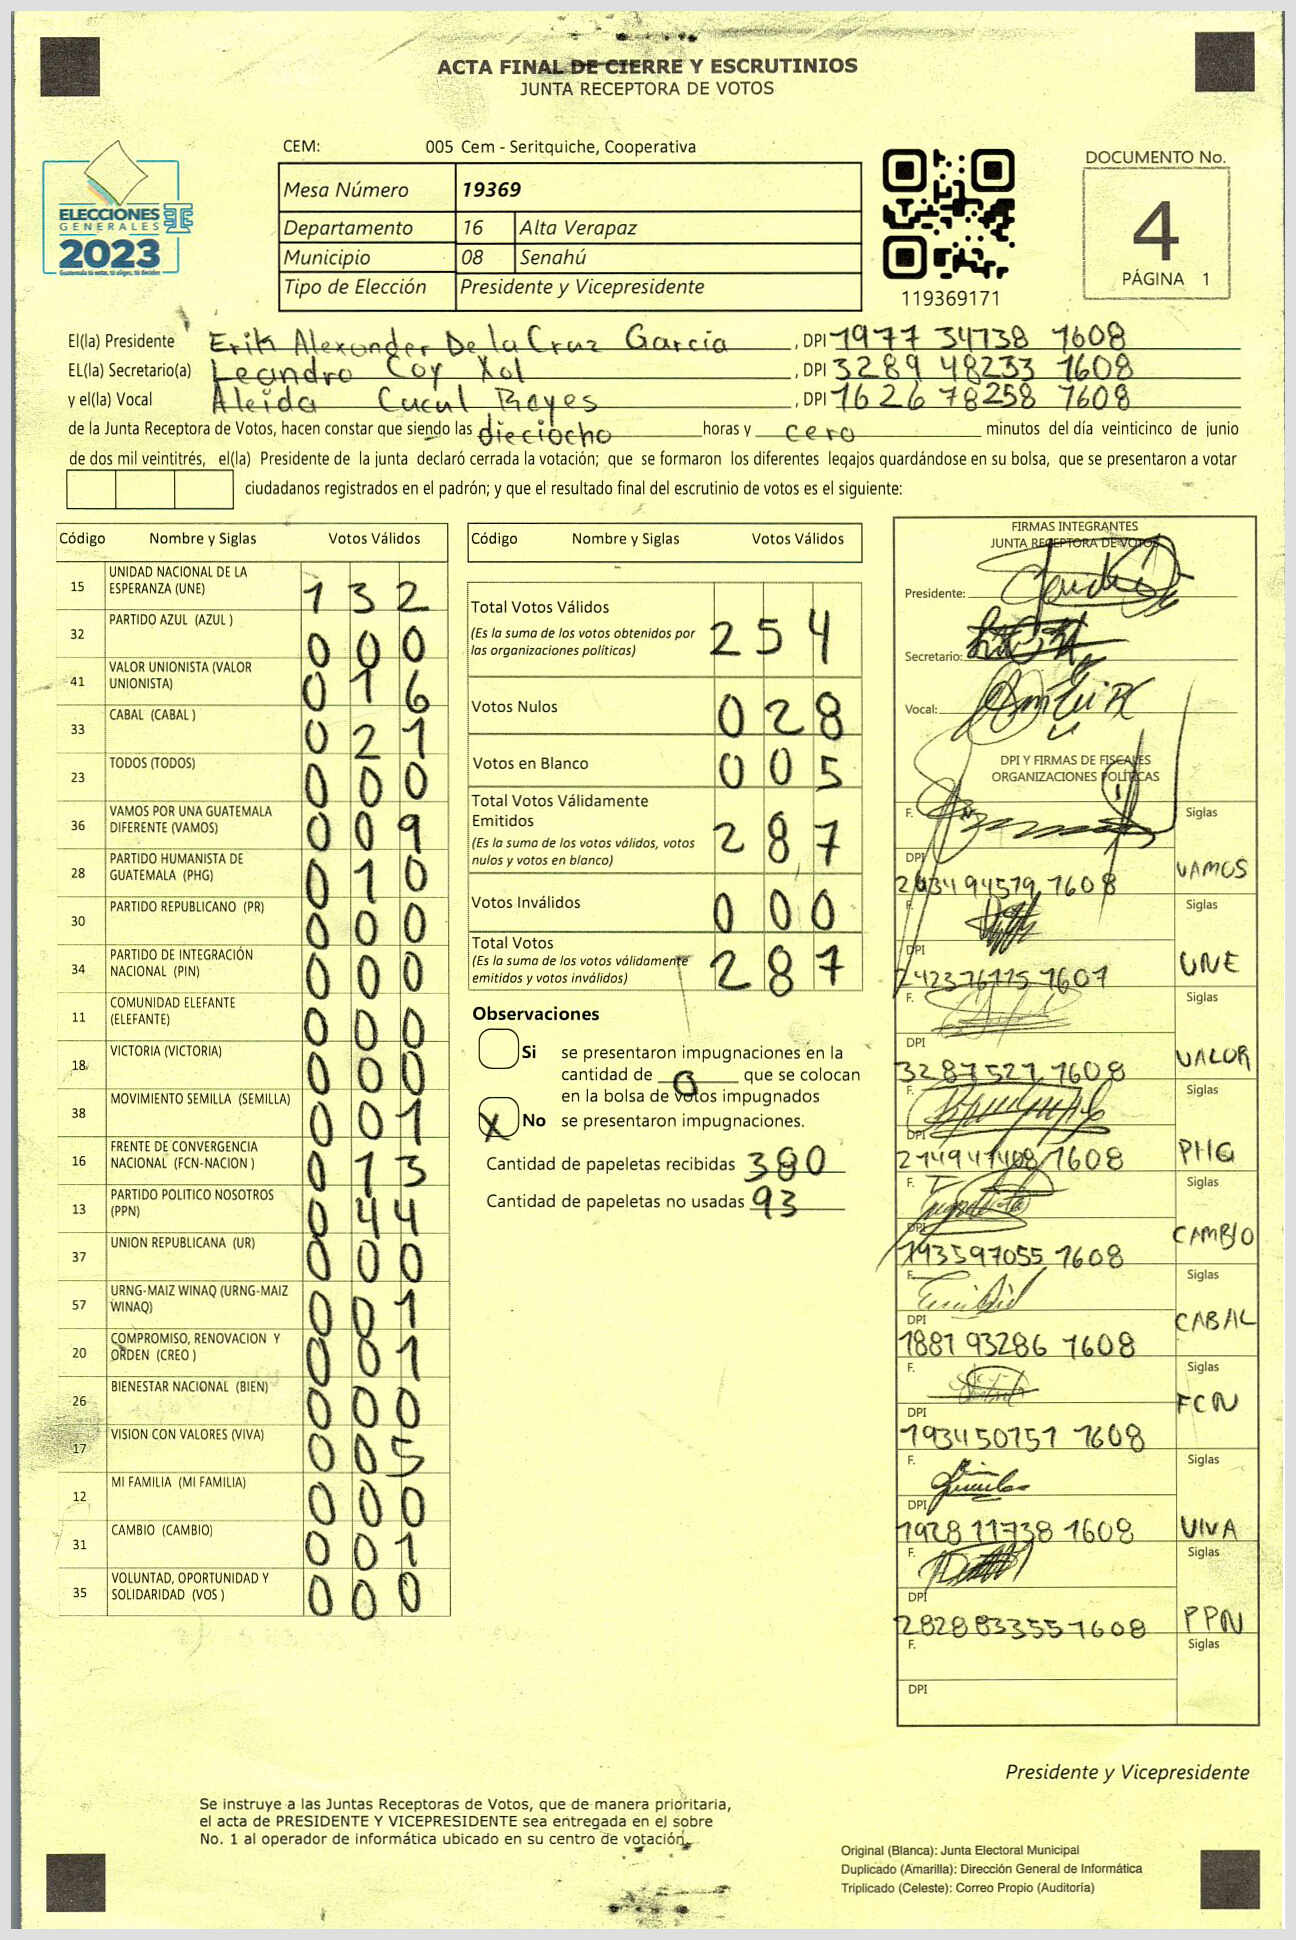 ACTA FINAL DE CIERRE Y ESCRUTINIOS
JUNTA RECEPTORA DE VOTOS
CEM: 005 Cem - Seritquiche, Cooperativa
Mesa Número 19369
Departamento 16 Alta Verapaz
Municipio 08 Senahú
Tipo de Elección Presidente y Vicepresidente
ELECCIONES
GENERALES
2023
119369171
DOCUMENTO No.
4
PÁGINA 1
El(la) Presidente Erik Alexander De la Cruz García, DPI 1977 34738 1608
EL(la) Secretario(a) Leandro Coy Xol, DPI 3289 48233 1608
y el(la) Vocal Aleida Cucul Reyes, DPI 1626 78258 1608
de la Junta Receptora de Votos, hacen constar que siendo las dieciocho horas y cero minutos del día veinticinco de junio
de dos mil veintitrés, el(la) Presidente de la junta declaró cerrada la votación; que se formaron los diferentes legajos guardándose en su bolsa, que se presentaron a votar
ciudadanos registrados en el padrón; y que el resultado final del escrutinio de votos es el siguiente:
Código Nombre y Siglas Votos Válidos
15 UNIDAD NACIONAL DE LA ESPERANZA (UNE) 132
32 PARTIDO AZUL (AZUL ) 000
41 VALOR UNIONISTA (VALOR UNIONISTA) 016
33 CABAL (CABAL ) 021
23 TODOS (TODOS) 000
36 VAMOS POR UNA GUATEMALA DIFERENTE (VAMOS) 009
28 PARTIDO HUMANISTA DE GUATEMALA (PHG) 010
30 PARTIDO REPUBLICANO (PR) 000
34 PARTIDO DE INTEGRACIÓN NACIONAL (PIN) 000
11 COMUNIDAD ELEFANTE (ELEFANTE) 000
18 VICTORIA (VICTORIA) 000
38 MOVIMIENTO SEMILLA (SEMILLA) 001
16 FRENTE DE CONVERGENCIA NACIONAL (FCN-NACION ) 013
13 PARTIDO POLITICO NOSOTROS (PPN) 044
37 UNION REPUBLICANA (UR) 000
57 URNG-MAIZ WINAQ (URNG-MAIZ WINAQ) 001
20 COMPROMISO, RENOVACION Y ORDEN (CREO ) 001
26 BIENESTAR NACIONAL (BIEN) 000
17 VISION CON VALORES (VIVA) 005
12 MI FAMILIA (MI FAMILIA) 000
31 CAMBIO (CAMBIO) 001
35 VOLUNTAD, OPORTUNIDAD Y SOLIDARIDAD (VOS ) 000
Código Nombre y Siglas Votos Válidos
Total Votos Válidos 254
(Es la suma de los votos obtenidos por
las organizaciones políticas)
Votos Nulos 028
Votos en Blanco 005
Total Votos Válidamente
Emitidos 287
(Es la suma de los votos válidos, votos
nulos y votos en blanco)
Votos Inválidos 000
Total Votos 287
(Es la suma de los votos válidamente
emitidos y votos inválidos)
Observaciones
Si se presentaron impugnaciones en la
cantidad de 0 que se colocan
en la bolsa de votos impugnados
X No se presentaron impugnaciones.
Cantidad de papeletas recibidas 380
Cantidad de papeletas no usadas 93
FIRMAS INTEGRANTES
JUNTA RECEPTORA DE VOTOS
Presidente:
Secretario:
Vocal:
DPI Y FIRMAS DE FISCALES
ORGANIZACIONES POLÍTICAS
F. Siglas
DPI 1608 VAMOS
F. Siglas
DPI 1607 UNE
F. Siglas
DPI 1608 VALOR
F. Siglas
DPI 1608 PHG
F. Siglas
DPI 193597055 1608 CAMBIO
F. Siglas
DPI 1881 93286 1608 CABAL
F. Siglas
DPI 193450751 1608 FCN
F. Siglas
DPI 1928 11738 1608 VIVA
F. Siglas
DPI 282883355 1608 PPN
F. Siglas
DPI
Presidente y Vicepresidente
Se instruye a las Juntas Receptoras de Votos, que de manera prioritaria,
el acta de PRESIDENTE Y VICEPRESIDENTE sea entregada en el sobre
No. 1 al operador de informática ubicado en su centro de votación.
Original (Blanca): Junta Electoral Municipal
Duplicado (Amarilla): Dirección General de Informática
Triplicado (Celeste): Correo Propio (Auditoría)